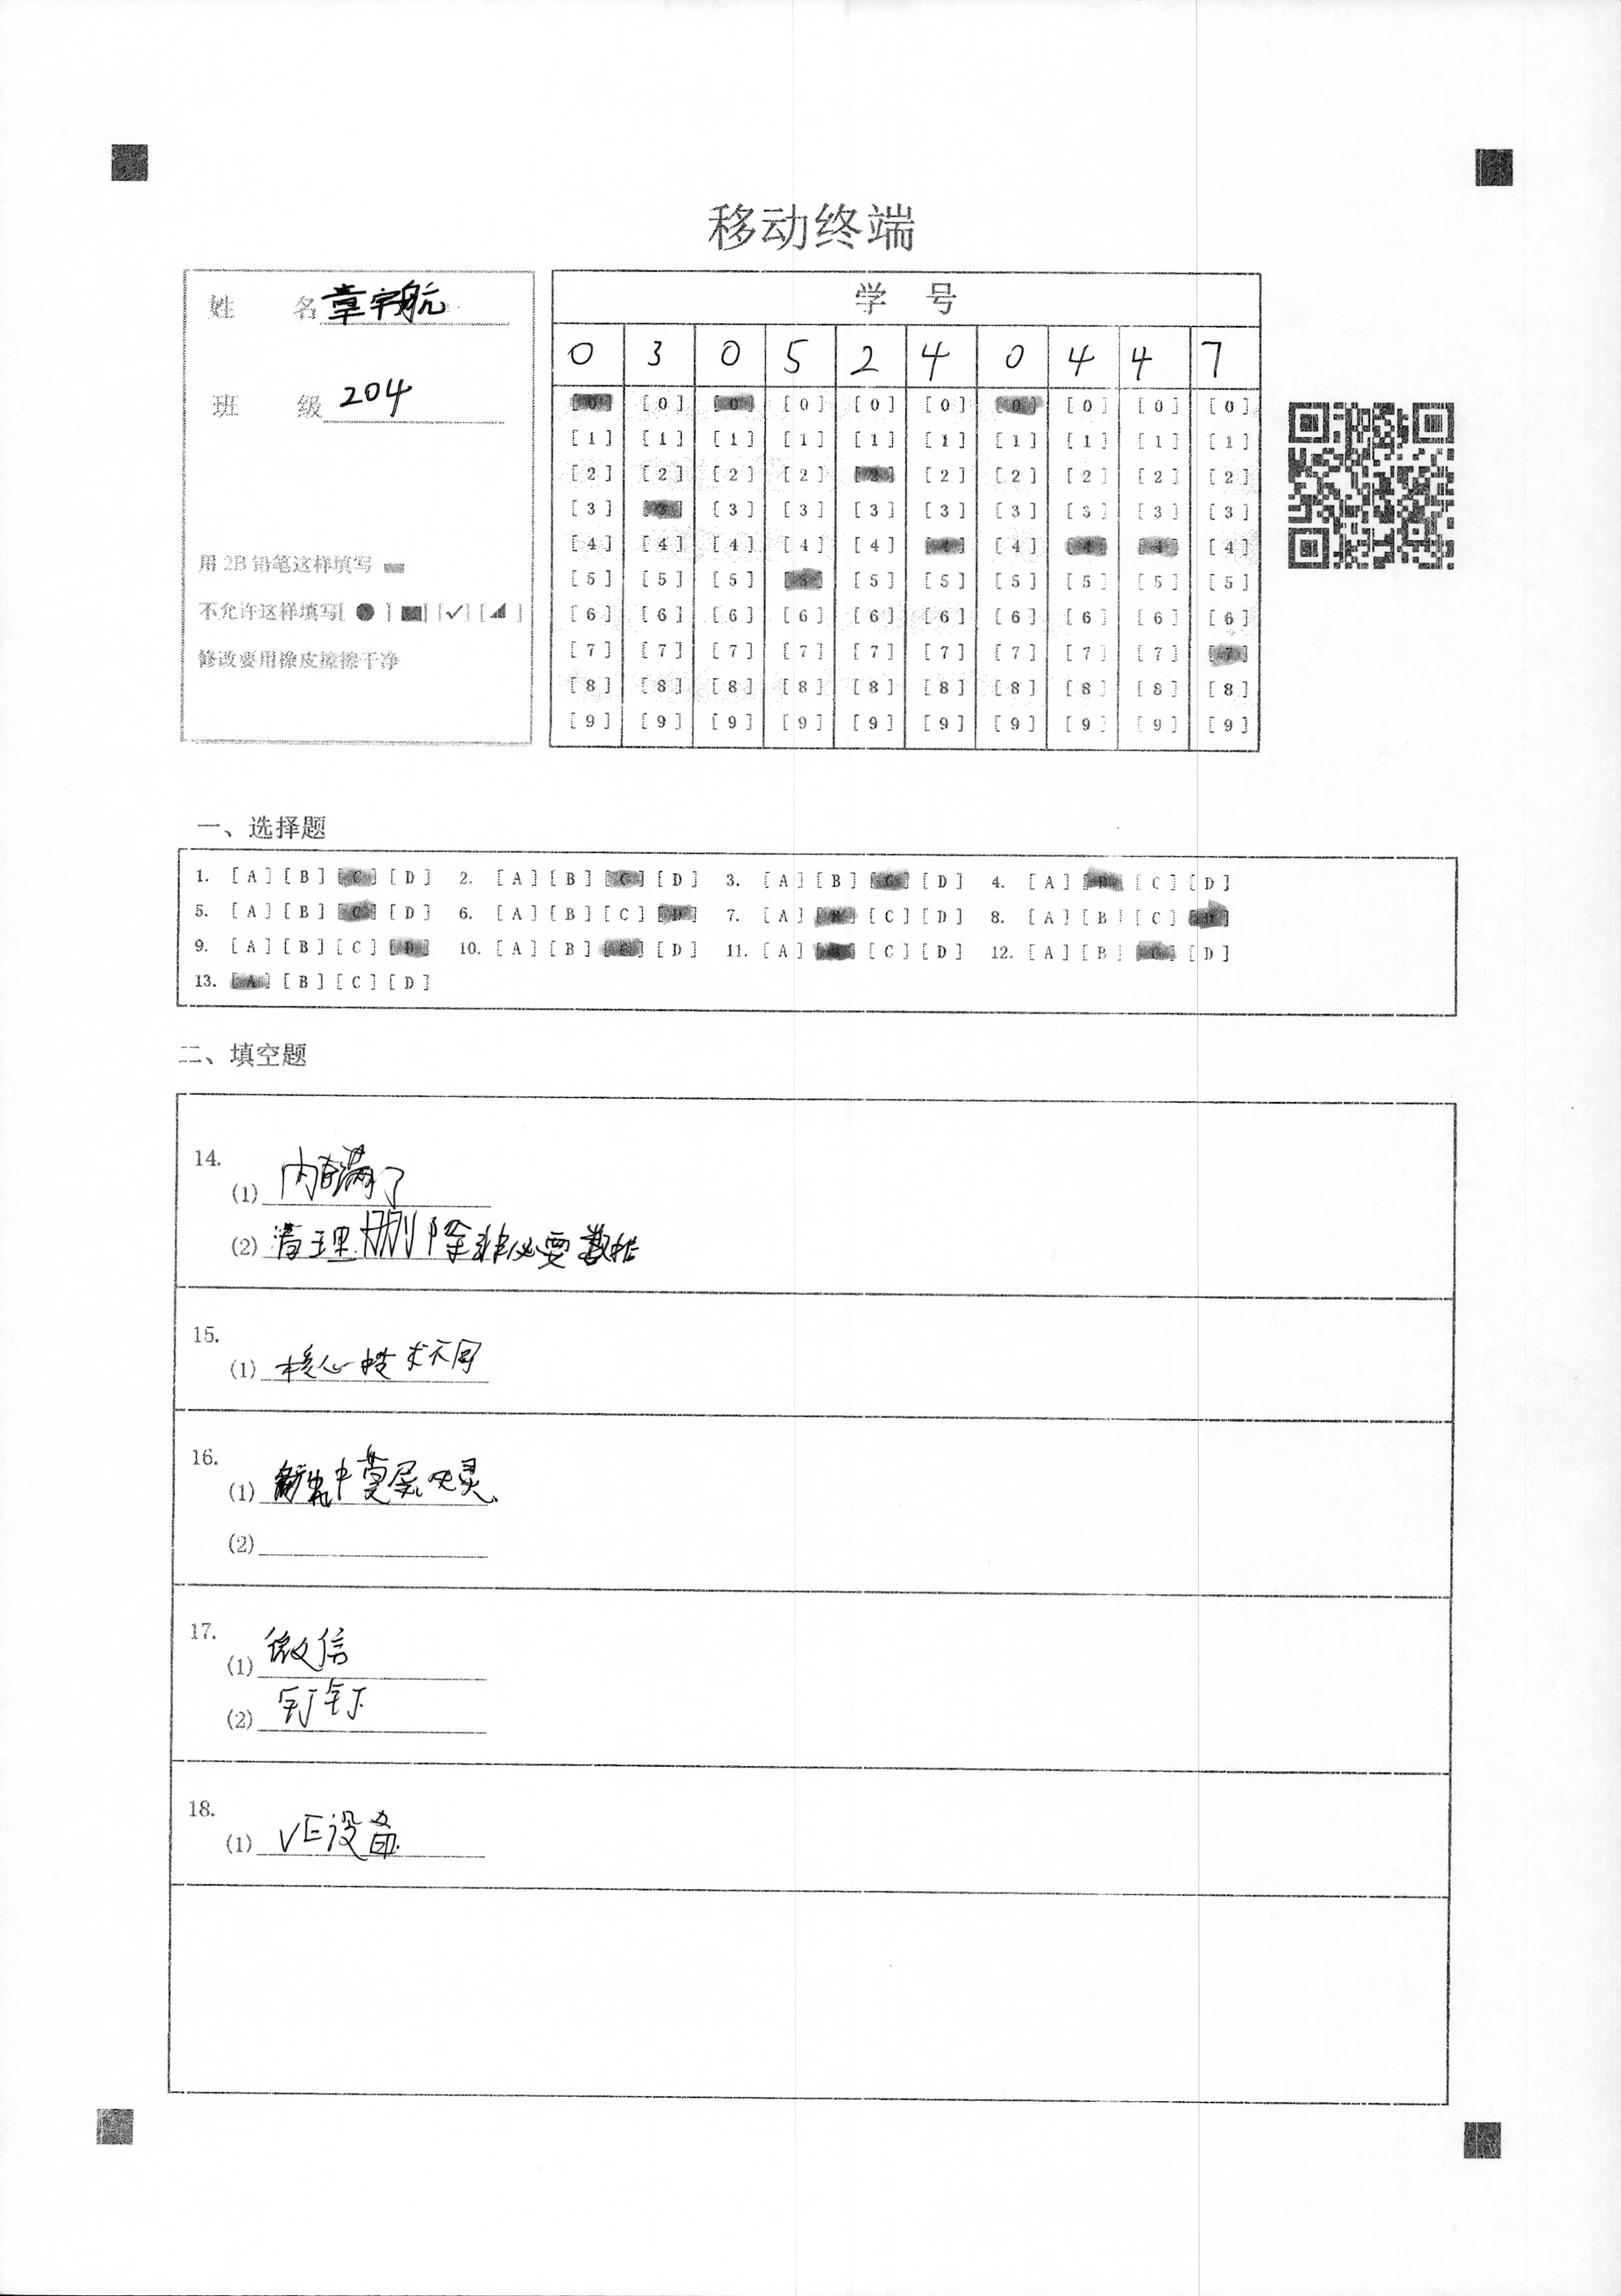 移动终端
姓 名 章宇航
班 级 204
用 2B 铅笔这样填写
不允许这样填写[ ● ] [■] [✓] [◢ ]
修改要用橡皮擦擦干净
学 号
0 3 0 5 2 4 0 4 4 7
[0] [0] [0] [0] [0] [0] [0] [0] [0] [0]
[1] [1] [1] [1] [1] [1] [1] [1] [1] [1]
[2] [2] [2] [2] [2] [2] [2] [2] [2] [2]
[3] [3] [3] [3] [3] [3] [3] [3] [3] [3]
[4] [4] [4] [4] [4] [4] [4] [4] [4] [4]
[5] [5] [5] [5] [5] [5] [5] [5] [5] [5]
[6] [6] [6] [6] [6] [6] [6] [6] [6] [6]
[7] [7] [7] [7] [7] [7] [7] [7] [7] [7]
[8] [8] [8] [8] [8] [8] [8] [8] [8] [8]
[9] [9] [9] [9] [9] [9] [9] [9] [9] [9]
一、选择题
1. [A] [B] [C] [D] 2. [A] [B] [C] [D] 3. [A] [B] [C] [D] 4. [A] [B] [C] [D]
5. [A] [B] [C] [D] 6. [A] [B] [C] [D] 7. [A] [B] [C] [D] 8. [A] [B] [C] [D]
9. [A] [B] [C] [D] 10. [A] [B] [C] [D] 11. [A] [B] [C] [D] 12. [A] [B] [C] [D]
13. [A] [B] [C] [D]
二、填空题
14.
(1) 内存满了
(2) 清理删除非必要数据
15.
(1) 核心技术不同
16.
(1) 中
(2)
17.
(1) 微信
(2) 钉钉
18.
(1) VE设备